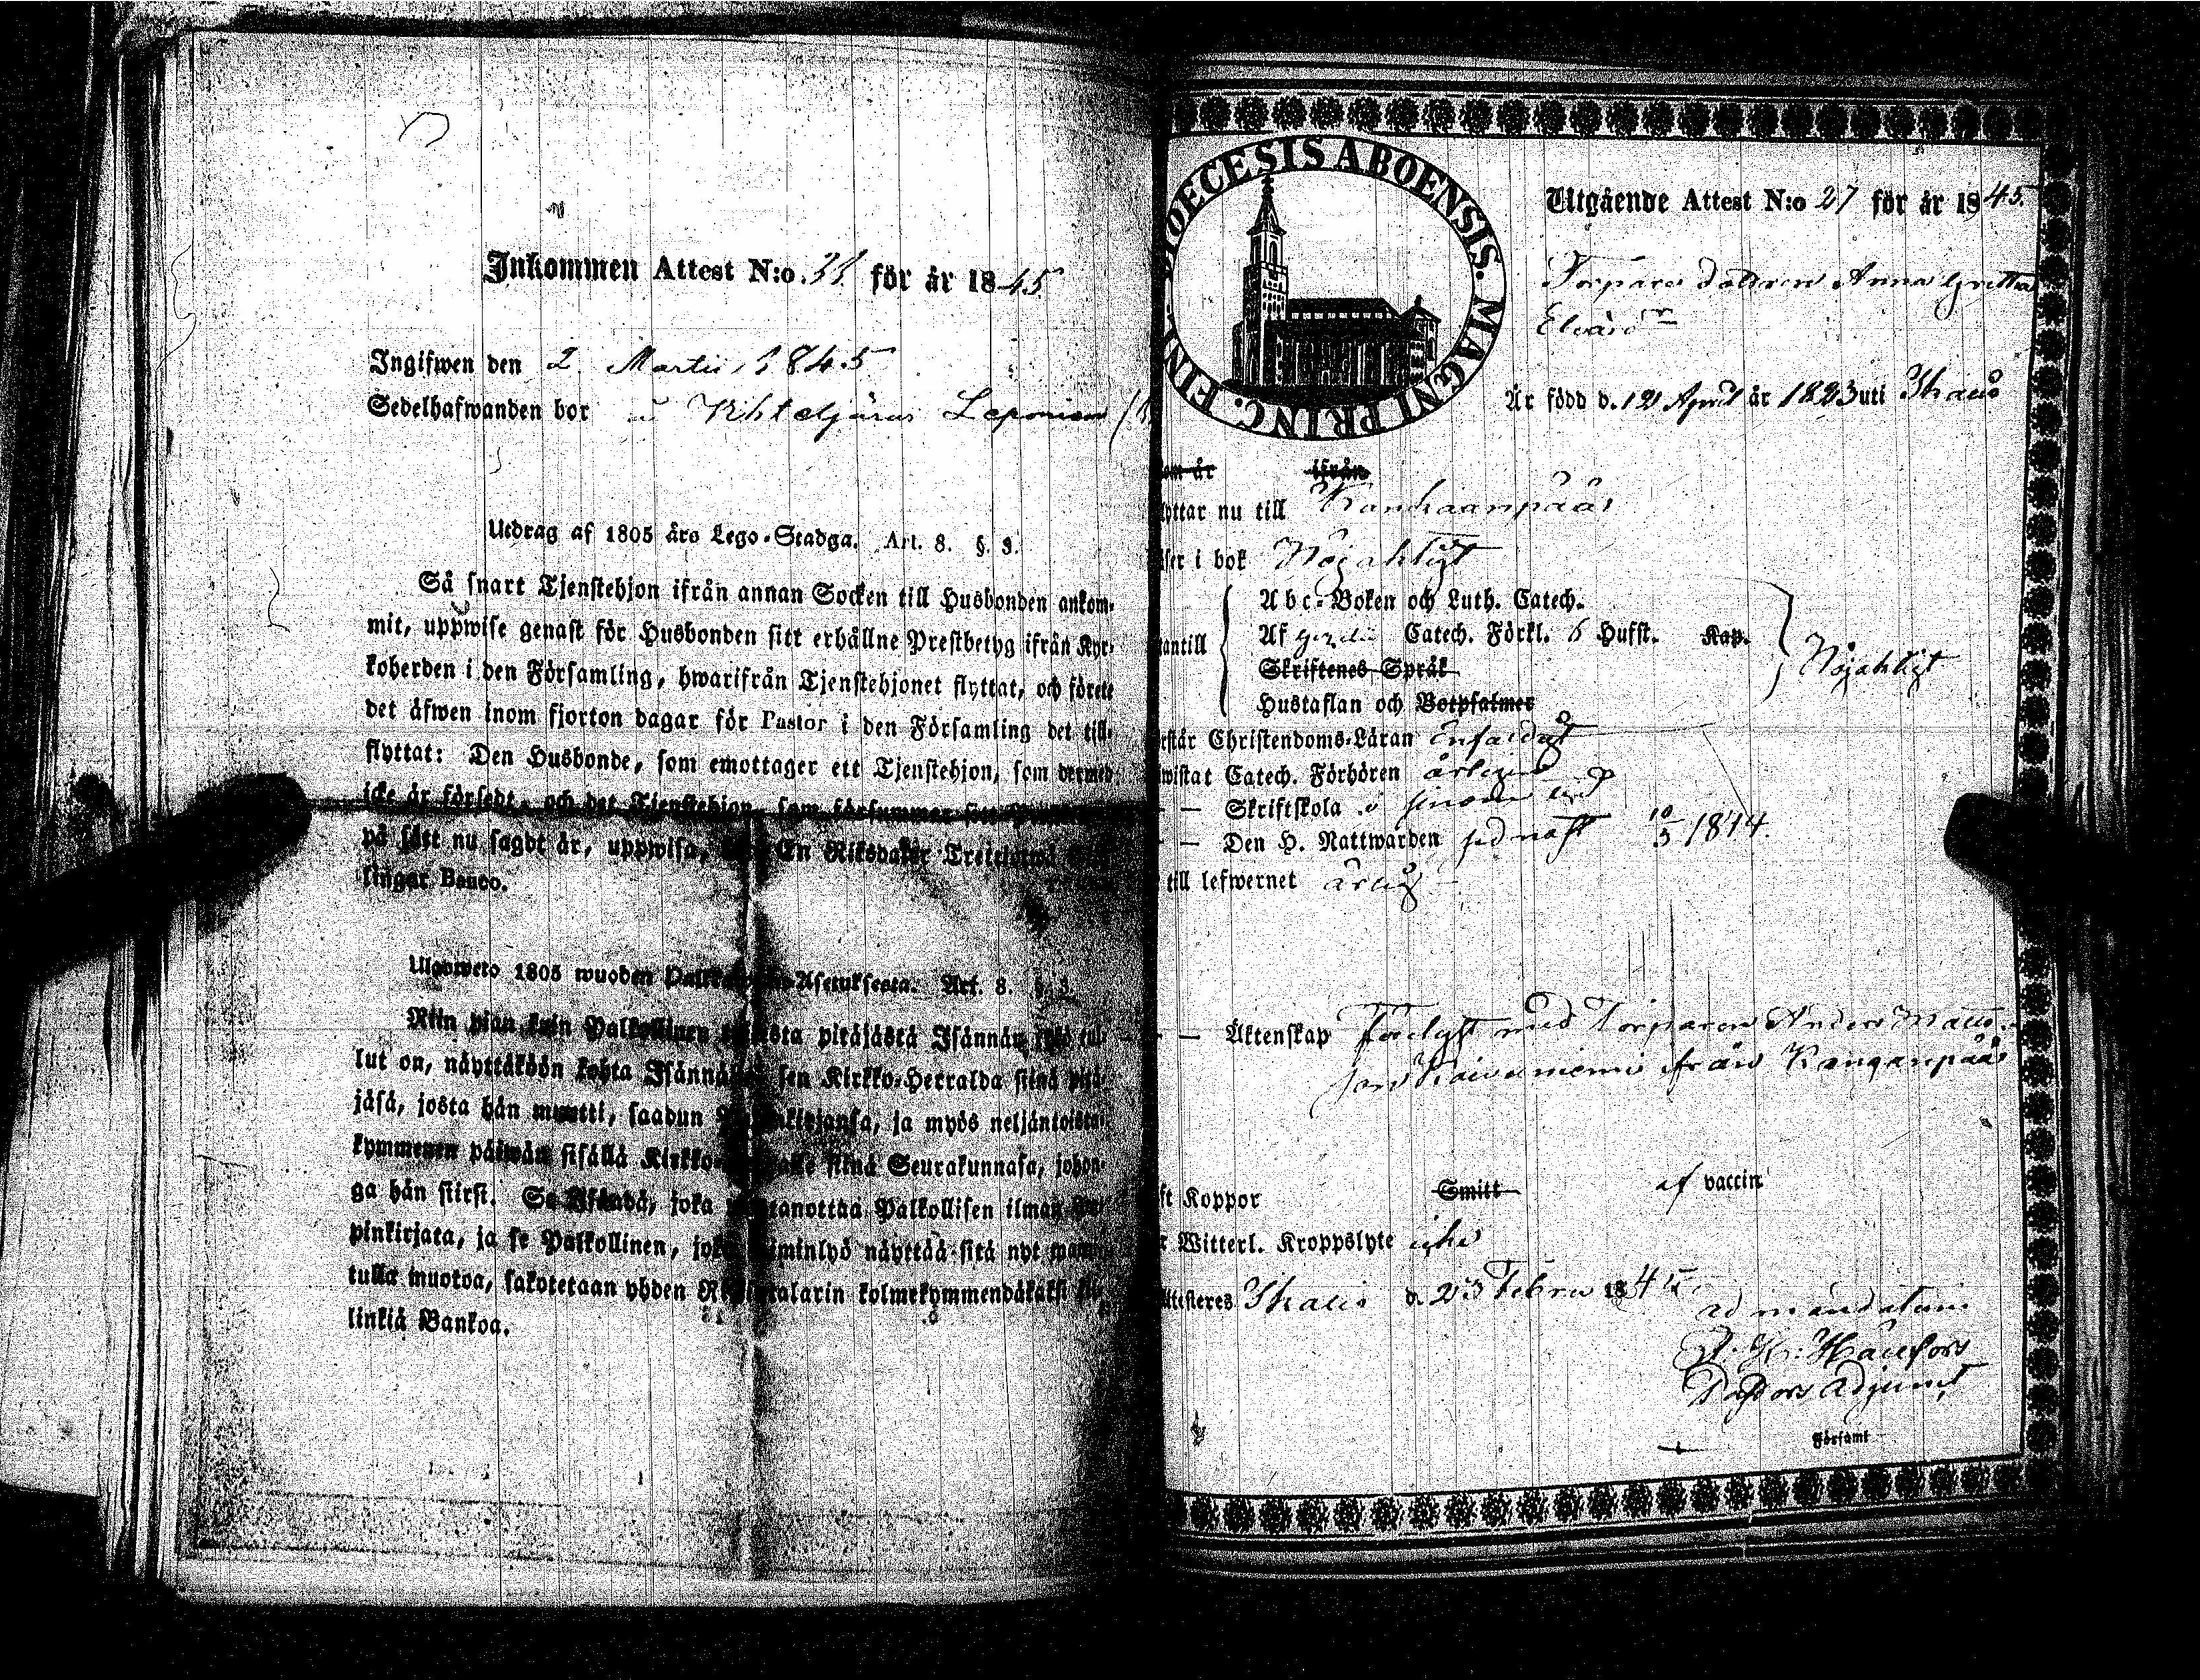 Inkommen Attest N:o 31. för år 1845
Ingifwen den 2. Martii 1845
Sedelhafwanden bor
Utdrag af 1805 års Lego-Stadga. Art. 8. §. 3.
Så snart Tjenstehjon ifrån annan Socken till Husbonden ankom-
mit, uppwise genast för Husbonden sitt erhållne Prestbetyg ifrån Kyr-
koherden i den Församling, hwarifrån Tjenstehjonet flyttat, och förete
det äfwen inom fjorton dagar för Pastor i den Församling det till-
flyttat: Den Husbonde, som emottager ett Tjenstehjon, som dermed
icke är försedt, och det Tjenstehjon, som försummar sitt
på sätt nu sagdt är, uppwisa, En Riksdaler
lingar Banco.
Ulosweto 1805 wuoden Asetuksesta. Art. 8. §. 3.
Niin pian kuin Palkollinen pitäjästä Isännän
lut on, näyttäköön kohta Isännä sen Kirkko-Herralda siinä pitä-
jäsä, josta hän muutti, saadun ja myös neljäntoista-
kymmenen päiwän sisällä Kirkko- siinä Seurakunnasa, johon-
ga hän siirsi. Se Isändä, joka Palkollisen ilman
pinkirjata, ja se Palkollinen, joka näyttää sitä nyt
tulla muotoa, sakotetaan yhden kolmekymmendäkaksi
linkiä Bankoa.
DIOECESIS ABOENSIS. MAGNI PRINC. FINL.
Utgående Attest N:o 27 för år 1845.
Torpare dottren Anna Gretha
Är född d. April år 1823 uti Ikalis
om år ifrån
yttar nu till Kankaanpää
äser i bok Nöjaktigt
Abc-Boken och Luth. Catech.
antill Af Catech. Förkl. 6 Hufst. Kap.
Skriftenes Språk
Nöjaktigt
Hustaflan och Botpsalmer
rstår Christendoms-Läran Enfaldigt
wistat Catech. Förhören årligen
— — Skriftskola i
— — Den H. Nattwarden sednast 10/3 1844.
till lefwernet ärlig
— — Äktenskap Förlyst med Torparen Anders
son från Kanganpää
ft Koppor Smitt af vaccin
r Witterl. Kroppslyte icke
ttesteres Ikalis d. 23 Febru 1845
ad mandatum
Pastors Adjunct
Församl